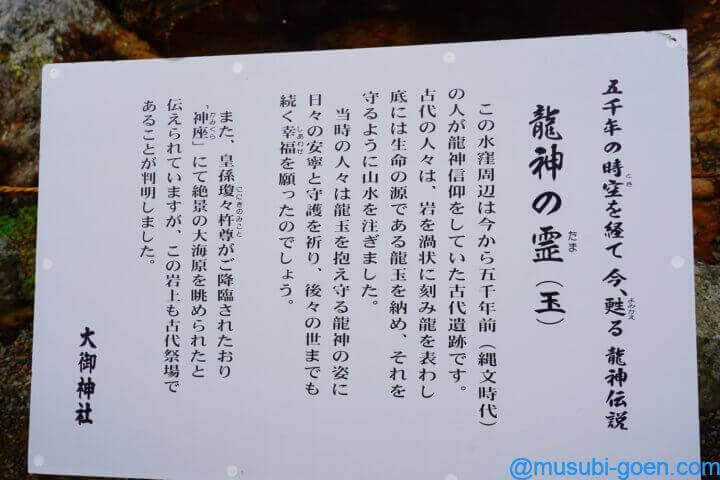 五千年の時空を経て 今、甦る 龍神伝説
龍神の霊(玉)
この水窪周辺は今から五千年前(縄文時代)
の人が龍神信仰をしていた古代遺跡です。
古代の人々は、岩を渦状に刻み龍を表わし
底には生命の源である龍玉を納め、それを
守るように山水を注ぎました。
当時の人々は龍玉を抱え守る龍神の姿に
日々の安寧と守護を祈り、後々の世までも
続く幸福を願ったのでしょう。
また、皇孫瓊々杵尊がご降臨されたおり
「神座」にて絶景の大海原を眺められたと
伝えられていますが、この岩上も古代祭場で
あることが判明しました。
大御神社
@musubi-goen.com